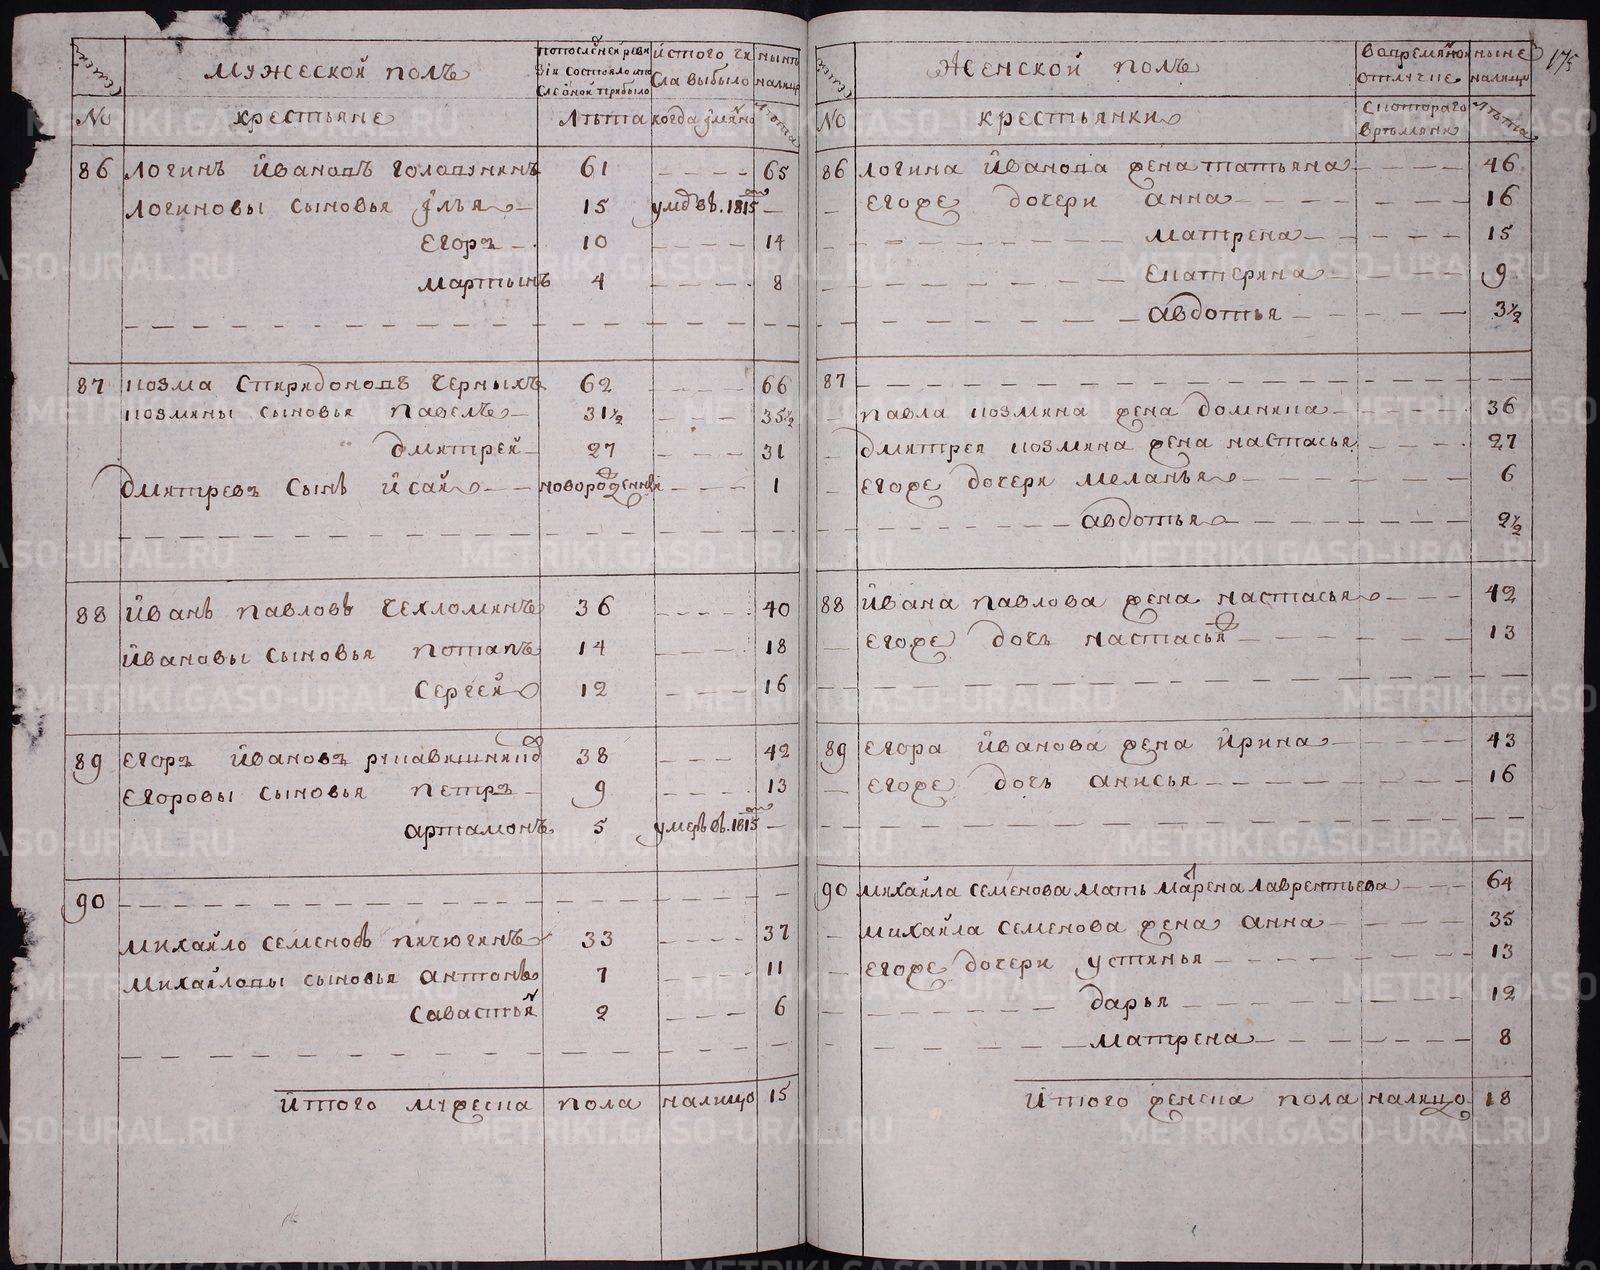 мужеской полъ
крестьяне
№
лѣта
когда
лѣта
86 логинъ ивановъ голодунинъ 61 65
логиновы сыновья илья 15 1815
егоръ 10 14
мартынъ 4 8
87 козма спиридоновъ черныхъ 62 66
козмины сыновья павелъ 31½ 35½
дмитрей 27 31
дмитревъ сынъ исай новорожденный 1
88 иванъ павловъ чехломинъ 36 40
ивановы сыновья потапъ 14 18
сергей 12 16
89 егоръ ивановъ рукавишников 38 42
егоровы сыновья петръ 9 13
артамонъ 5 умеръ въ 1815
90
михайло семеновъ пичюгинъ 33 37
михайловы сыновья антонъ 7 11
савастьян 2 6
итого мужеска пола налицо 15
женской полъ
175
во временной отлучке
ныне налицо
№
крестьянки
с которого времяни
лѣта
86 логина иванова жена татьяна 46
егоже дочери анна 16
матрена 15
екатерина 9
авдотья 3½
87
павла козмина жена домника 36
дмитрея козмина жена настасья 27
егоже дочери меланья 6
авдотья 2½
88 ивана павлова жена настасья 42
егоже дочь настасья 13
89 егора иванова жена ирина 43
егоже дочь анисья 16
90 михаила семенова мать марена лаврентьева 64
михаила семенова жена анна 35
егоже дочери устинья 13
дарья 12
матрена 8
итого женска пола налицо 18
METRIKI.GASO-URAL.RU